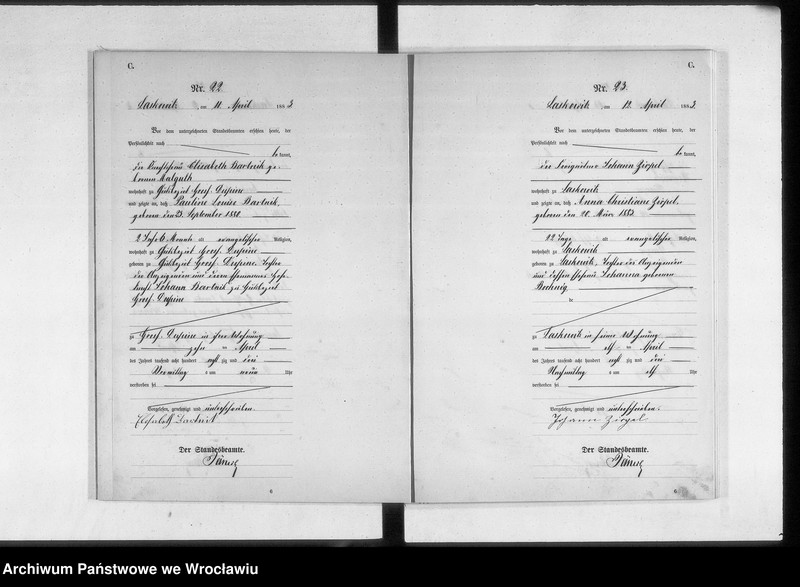 C.
Nr. 22.
am 11. April 1883
Vor dem unterzeichneten Standesbeamten erschien heute, der
Persönlichkeit nach
bekannt,
die Elisabeth Bartnik ge-
borene
wohnhaft zu Groß
und zeigte an, daß Pauline Louise Bartnik,
geboren den 23. September 1880.
2 Jahr 6 Monat alt evangelischer Religion,
wohnhaft zu Groß
geboren zu Groß Tochter
der Anzeigerin und deren Ehemannes
Johann Bartnik zu
Groß
zu Groß in ihrer Wohnung
am zehn ten April
des Jahres tausend acht hundert acht zig und drei
Vormittag s um neun Uhr
verstorben sei
Vorgelesen, genehmigt und unterschrieben.
Elisabeth Bartnik
Der Standesbeamte.
6
C.
Nr. 23.
am 12. April 1883
Vor dem unterzeichneten Standesbeamten erschien heute, der
Persönlichkeit nach
bekannt,
der Johann Zirpel
wohnhaft zu
und zeigte an, daß Anna Christiane Zirpel,
geboren den 20. März 1883
22 Tage alt evangelischer Religion,
wohnhaft zu
geboren zu Tochter des Anzeigenden
und dessen Ehefrau Johanna geborenen
zu in seiner Wohnung
am elf ten April
des Jahres tausend acht hundert acht zig und drei
Nachmittag s um elf Uhr
verstorben sei
Vorgelesen, genehmigt und unterschrieben.
Johann Zirpel
Der Standesbeamte.
6
Archiwum Państwowe we Wrocławiu